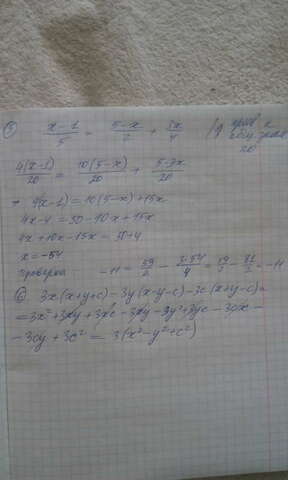 5) (x-1)/5 = (5-x)/2 + 3x/4
4(x-1)/20 = 10(5-x)/20 + 5·3x/20
4(x-1) = 10(5-x) + 15x
4x-4 = 50-10x+15x
4x+10x-15x = 50+4
x = -54
проверка -11 = 59/2 - 3·54/4 = 59/2 - 81/2 = -11
6) 3x(x+y+c) - 3y(x-y-c) - 3c(x+y-c) =
= 3x²+3xy+3xc-3xy+3y²+3yc-3cx-
-3cy+3c² = 3(x²+y²+c²)